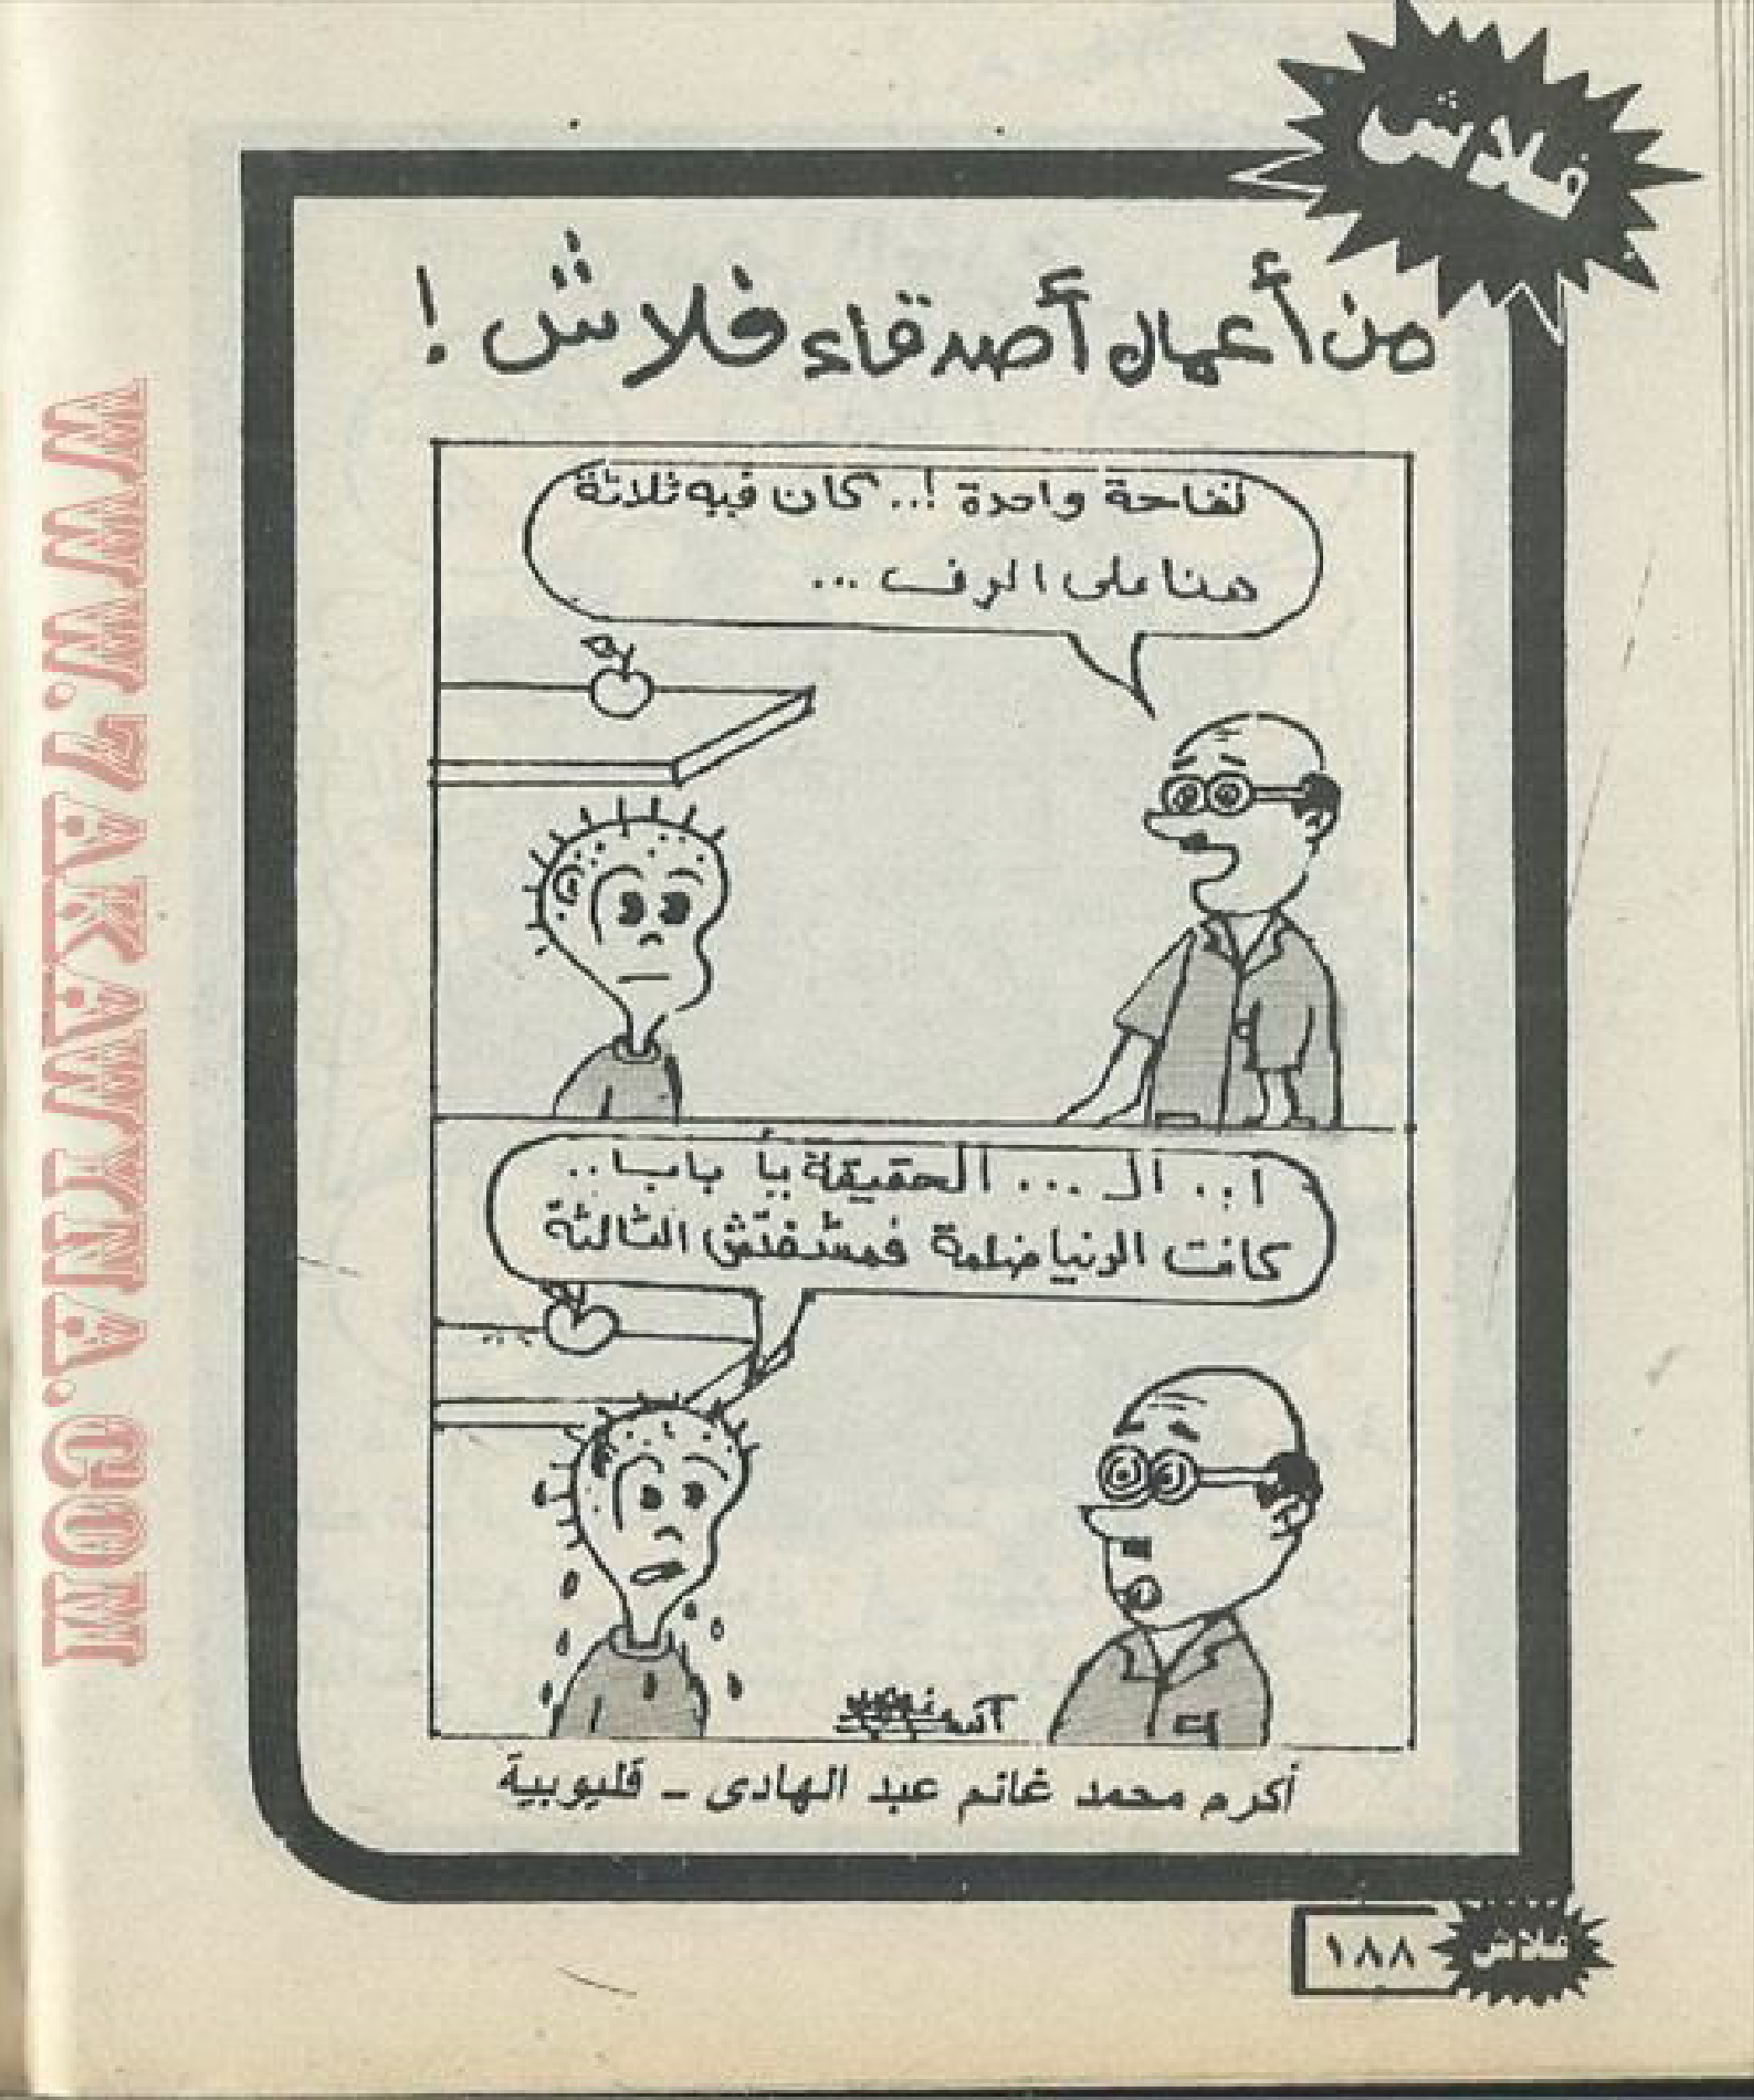 فلاش
من أعمال أصدقاء فلاش !
تفاحة واحدة !.. كان فيه ثلاثة
هنا على الرف ...
أ .. الـ ... الحقيقة يا بابا ..
كانت الدنيا ضلمة فمشفتش الثالثة
أكرم محمد غانم عبد الهادى - قليوبية
١٨٨
فلاش
WWW.7AKAWITNA.COM